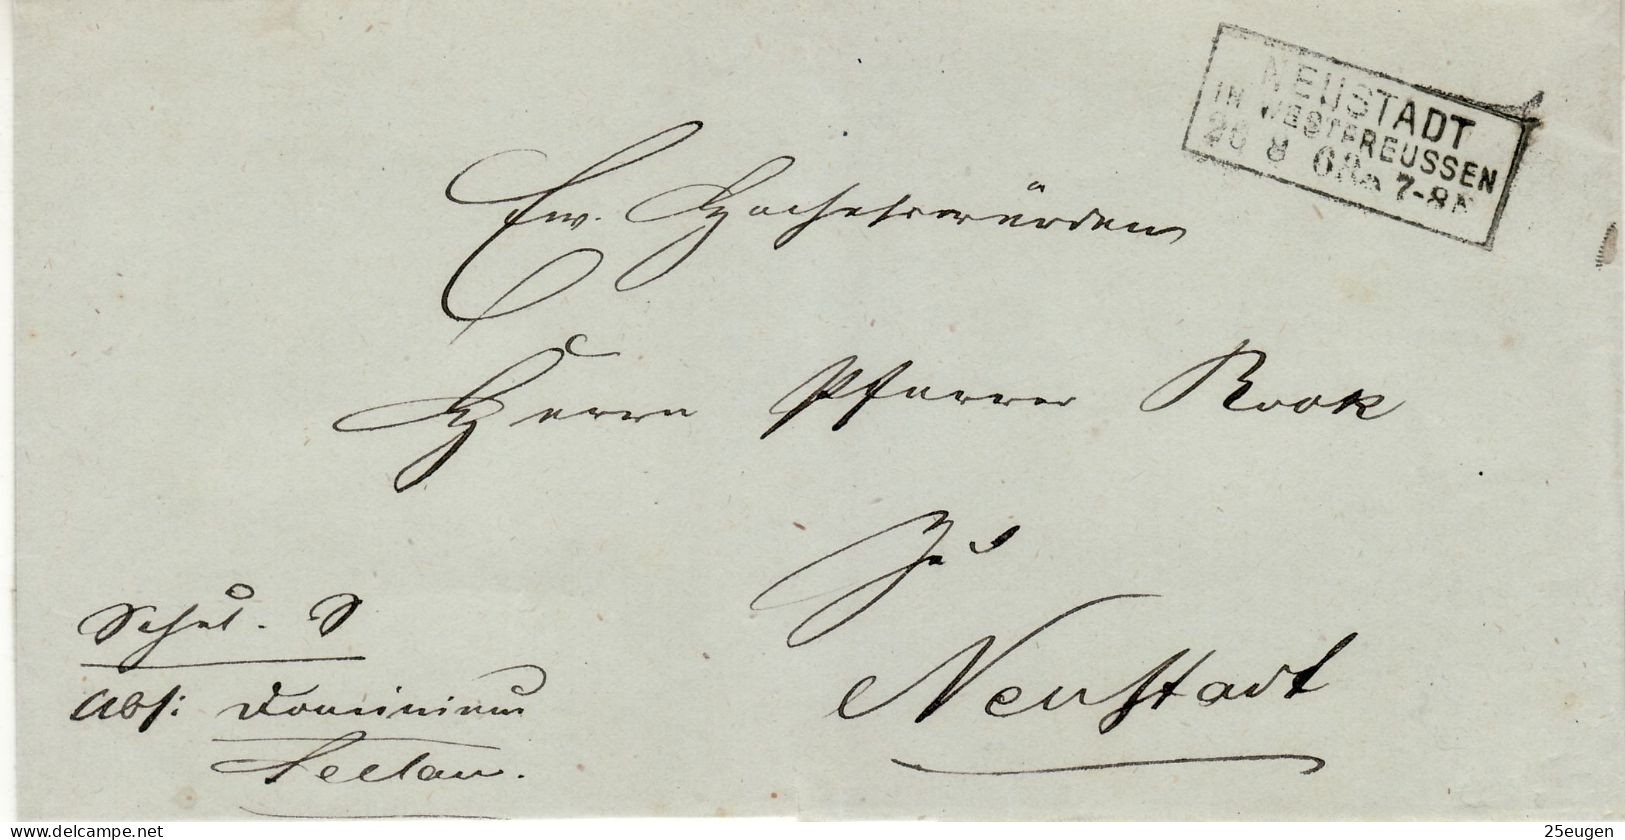 NEUSTADT
IN WESTPREUSSEN
20 8 68 7-8N
Ew. Hochehrwürden
Herrn Pfarrer Rook
zu
Neustadt
Schul. S
Abs: Dominium